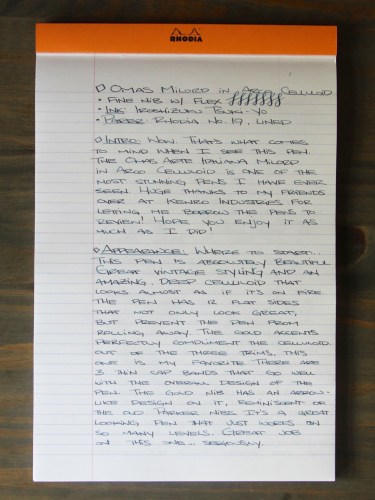 RHODIA
OMAS MILORD in ARCO CELLULOID
• FINE NIB W/ FLEX
• INK: IROSHIZUKU TSUKI-YO
• PAPER: RHODIA No. 19, LINED
INTRO: WOW. THAT'S WHAT COMES
TO MIND WHEN I SEE THIS PEN.
THE OMAS ARTE ITALIANA MILORD
IN ARCO CELLULOID IS ONE OF THE
MOST STUNNING PENS I HAVE EVER
SEEN. HUGE THANKS TO MY FRIENDS
OVER AT KENRO INDUSTRIES FOR
LETTING ME BORROW THE PENS TO
REVIEW! HOPE YOU ENJOY IT AS
MUCH AS I DID!
APPEARANCE: WHERE TO START...
THIS PEN IS ABSOLUTELY BEAUTIFUL.
GREAT VINTAGE STYLING AND AN
AMAZING, DEEP CELLULOID THAT
LOOKS ALMOST AS IF IT'S ON FIRE.
THE PEN HAS 12 FLAT SIDES
THAT NOT ONLY LOOK GREAT,
BUT PREVENT THE PEN FROM
ROLLING AWAY. THE GOLD ACCENTS
PERFECTLY COMPLIMENT THE CELLULOID.
OUT OF THE THREE TRIMS, THIS
ONE IS MY FAVORITE. THERE ARE
3 THIN CAP BANDS THAT GO WELL
WITH THE OVERALL DESIGN OF THE
PEN. THE GOLD NIB HAS AN ARROW-
LIKE DESIGN ON IT, REMINISCENT OF
THE OLD PARKER NIBS. IT'S A GREAT
LOOKING PEN THAT JUST WORKS ON
SO MANY LEVELS. GREAT JOB
ON THIS ONE... SERIOUSLY.